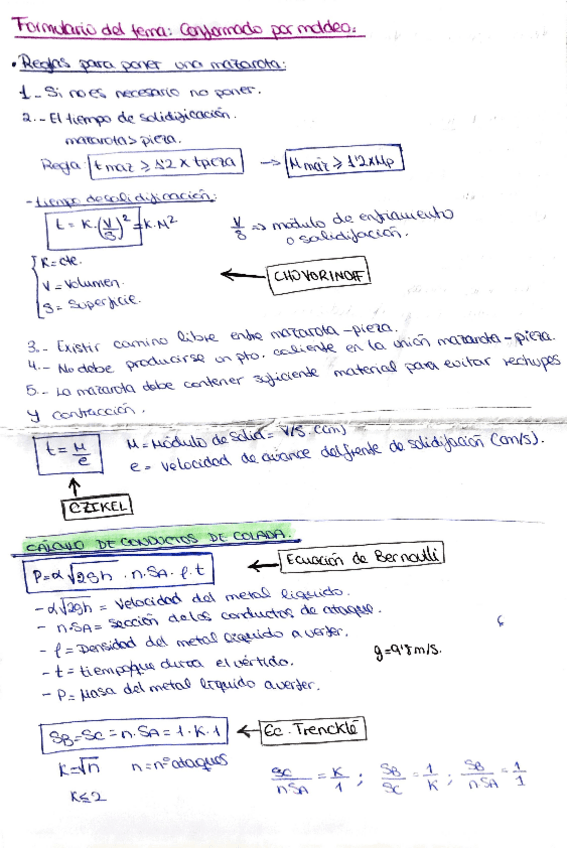 Formulario del tema: Conformado por moldeo:
• Reglas para poner una mazarota:
1.- Si no es necesario no poner.
2.- El tiempo de solidificación.
mazarota > pieza.
Regla: t maz ≥ 1'2 x t pieza → M maz ≥ 1'2 x Mp
- tiempo de solidificación:
t = K·(V/S)² = K·M²
V/S => módulo de enfriamiento
o solidificación.
K = cte.
V = Volumen.
S = Superficie.
← CHOVORINOFF
3.- Existir camino libre entre mazarota-pieza.
4.- No debe producirse un pto. caliente en la unión mazarota-pieza.
5.- La mazarota debe contener suficiente material para evitar rechupes
y contracción.
t = M/e
M = Módulo de solid = V/S. (cm)
e = Velocidad de avance del frente de solidificación (cm/s).
↑
CZIKEL
CÁLCULO DE CONDUCTOS DE COLADA.
P = α √2gh · n·SA · ρ·t ← Ecuación de Bernoulli
- α√2gh = Velocidad del metal líquido.
- n·SA = Sección de los conductos de ataque.
- ρ = Densidad del metal líquido a verter.
- t = tiempo que dura el vértido.
g = 9'8 m/s.
- P = Masa del metal líquido a verter.
SB = SC = n·SA = 1·K·1 ← Ec. Trencklé
K = √n n = nº ataques
K ≤ 2
SC/nSA = K/1 ; SB/SC = 1/K ; SB/nSA = 1/1